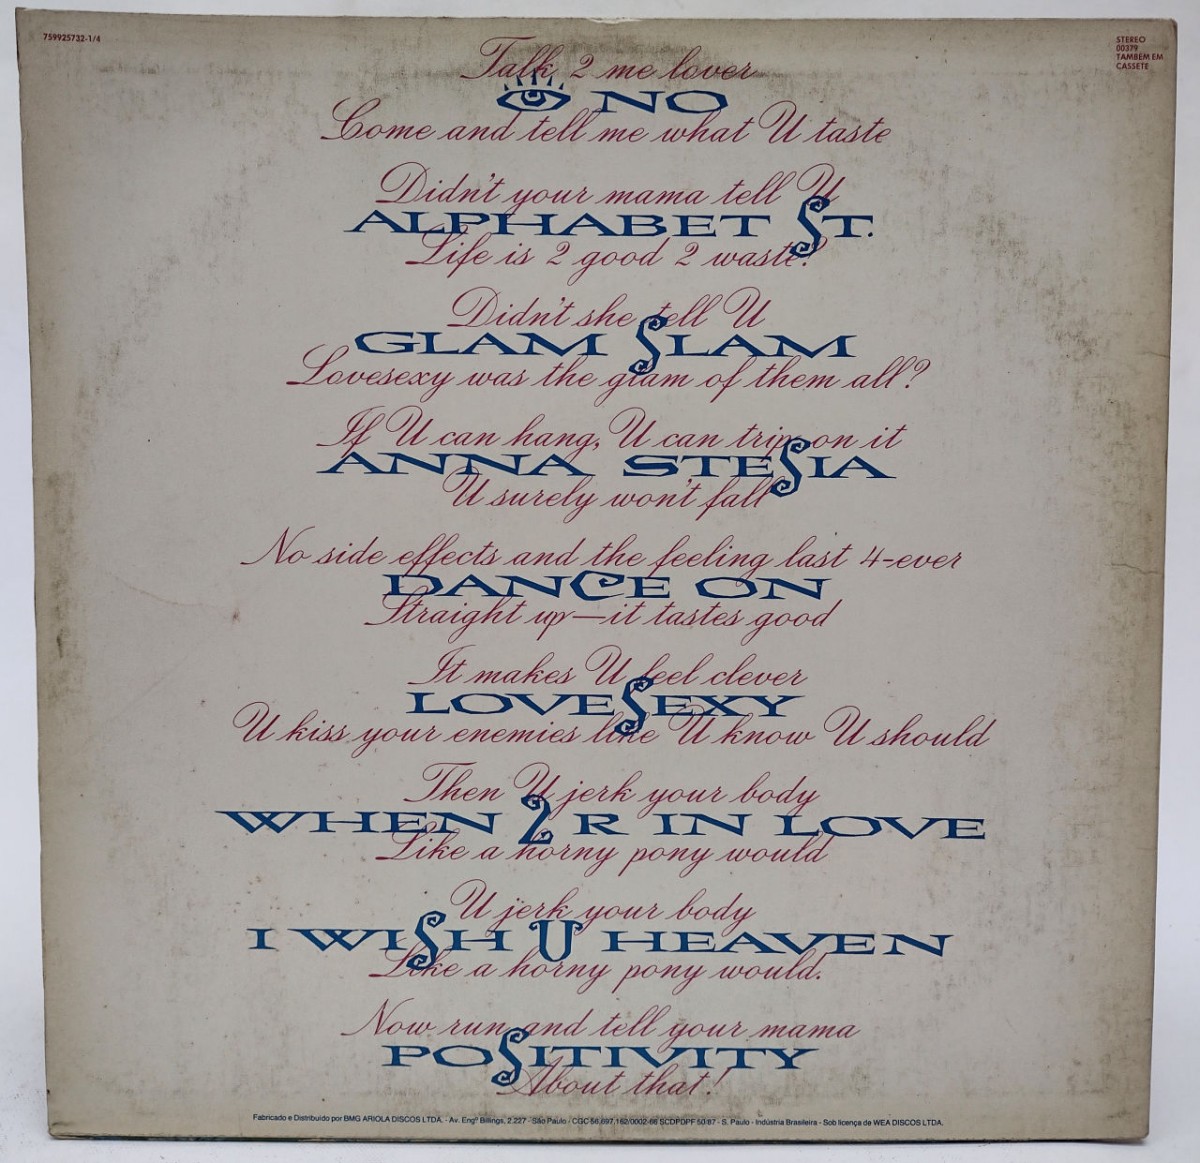 759925732-1/4
STEREO
00379
TAMBÉM EM
CASSETE
Talk 2 me lover
NO
Come and tell me what U taste
Didn't your mama tell U
ALPHABET ST.
Life is 2 good 2 waste?
Didn't she tell U
GLAM SLAM
Lovesexy was the glam of them all?
If U can hang, U can trip on it
ANNA STESIA
U surely won't fall
No side effects and the feeling last 4-ever
DANCE ON
Straight up—it tastes good
It makes U feel clever
LOVESEXY
U kiss your enemies like U know U should
Then U jerk your body
WHEN 2 R IN LOVE
Like a horny pony would
U jerk your body
I WISH U HEAVEN
Like a horny pony would.
Now run and tell your mama
POSITIVITY
About that!
Fabricado e Distribuido por BMG ARIOLA DISCOS LTDA. - Av. Engº Billings, 2.227 - São Paulo - CGC 56.697.162/0002-66 SCDPDPF 50/87 - S. Paulo - Indústria Brasileira - Sob licença de WEA DISCOS LTDA.